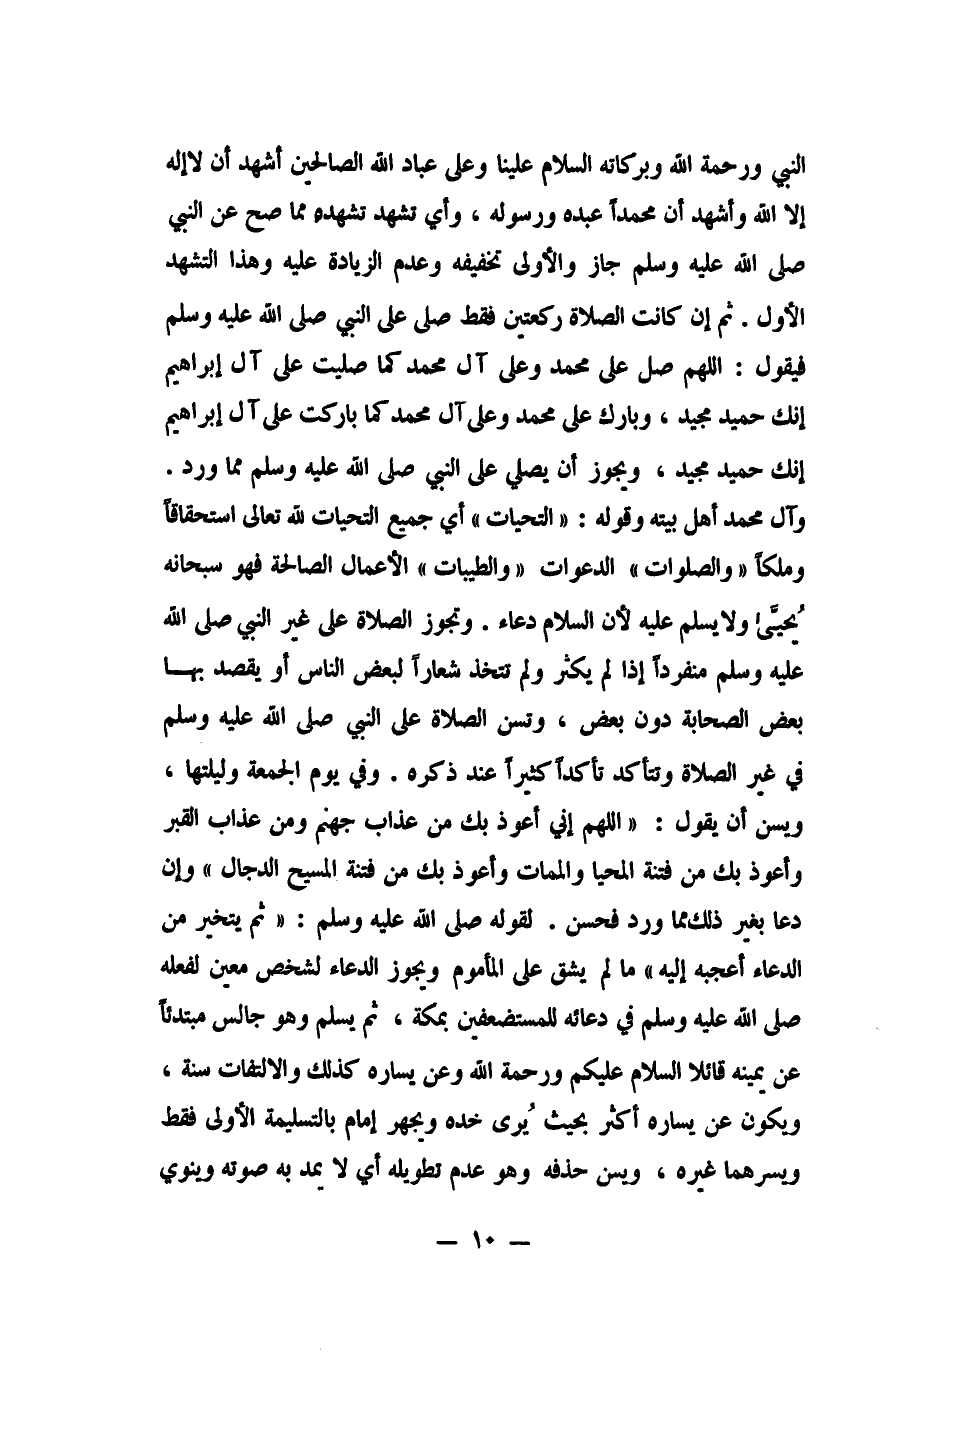 النبي ورحمة الله وبركاته السلام علينا وعلى عباد الله الصالحين أشهد أن لاإله
إلا الله وأشهد أن محمداً عبده ورسوله ، وأي تشهد تشهده مما صح عن النبي
صلى الله عليه وسلم جاز والأولى تخفيفه وعدم الزيادة عليه وهذا التشهد
الأول . ثم إن كانت الصلاة ركعتين فقط صلى على النبي صلى الله عليه وسلم
فيقول : اللهم صل على محمد وعلى آل محمد كما صليت على آل إبراهيم
إنك حميد مجيد ، وبارك على محمد وعلى آل محمد كما باركت على آل إبراهيم
إنك حميد مجيد ، ويجوز أن يصلي على النبي صلى الله عليه وسلم مما ورد .
وآل محمد أهل بيته وقوله : « التحيات » أي جميع التحيات لله تعالى استحقاقاً
وملكاً « والصلوات » الدعوات « والطيبات » الأعمال الصالحة فهو سبحانه
يُحيَّىٰ ولايسلم عليه لأن السلام دعاء . وتجوز الصلاة على غير النبي صلى الله
عليه وسلم منفرداً إذا لم يكثر ولم تتخذ شعاراً لبعض الناس أو يقصد بهـــا
بعض الصحابة دون بعض ، وتسن الصلاة على النبي صلى الله عليه وسلم
في غير الصلاة وتتأكد تأكداً كثيراً عند ذكره . وفي يوم الجمعة وليلتها ،
ويسن أن يقول : « اللهم إني أعوذ بك من عذاب جهنم ومن عذاب القبر
وأعوذ بك من فتنة المحيا والممات وأعوذ بك من فتنة المسيح الدجال » وإن
دعا بغير ذلك مما ورد فحسن . لقوله صلى الله عليه وسلم : « ثم يتخير من
الدعاء أعجبه إليه » ما لم يشق على المأموم ويجوز الدعاء لشخص معين لفعله
صلى الله عليه وسلم في دعائه للمستضعفين بمكة ، ثم يسلم وهو جالس مبتدئاً
عن يمينه قائلا السلام عليكم ورحمة الله وعن يساره كذلك والالتفات سنة ،
ويكون عن يساره أكثر بحيث يُرى خده ويجهر إمام بالتسليمة الأولى فقط
ويسرهما غيره ، ويسن حذفه وهو عدم تطويله أي لا يمد به صوته وينوي
— ١٠ —